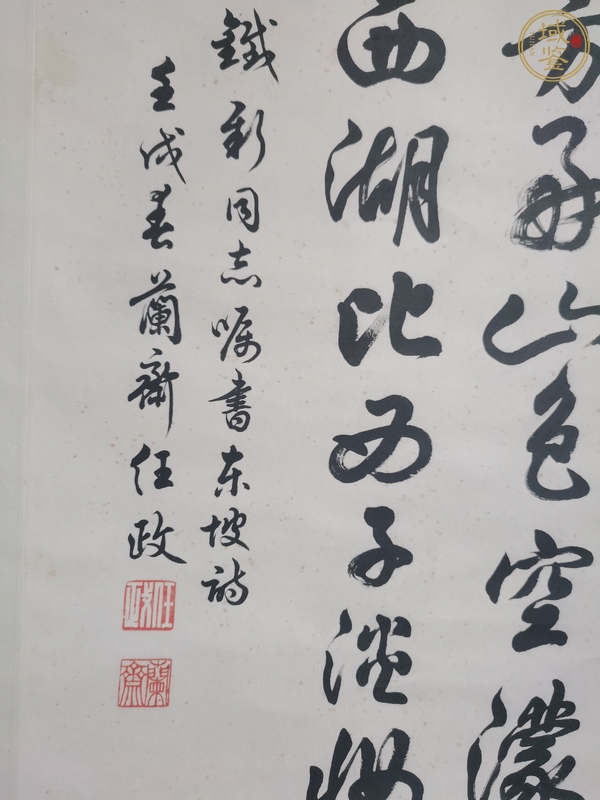 方好山色空濛
西湖比西子淡妝
鐵新同志嘱書东坡诗
壬戌春蘭齋任政
任政
蘭齋
域鉴